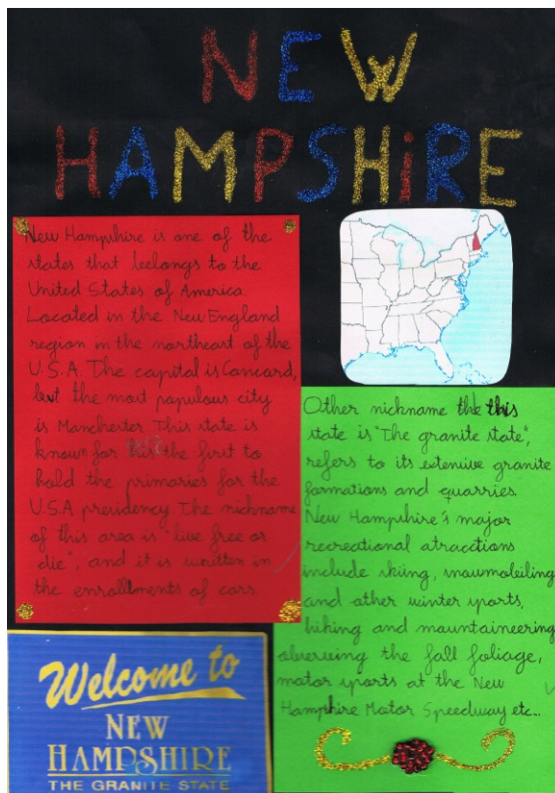 NEW
HAMPSHiRE
New Hamphire is one of the
states that beelongs to the
United States of America.
Located in the New England
region in the northeast of the
U.S.A. The capital is Concord,
but the most populous city
is Manchester. This state is
known for the first to
hold the primaries for the
U.S.A presidency. The nickname
of this area is "live free or
die", and it is written in
the enrollments of cars.
Other nickname the this
state is "The granite state",
refers to its extensive granite
formations and quarries.
New Hampshire's major
recreational atracctions
include skiing, snowmobiling
and other winter sports,
hiking and mountaineering
observing the fall foliage,
motor sports at the New
Hampshire Motor Speedway etc...
Welcome to
NEW
HAMPSHIRE
THE GRANITE STATE